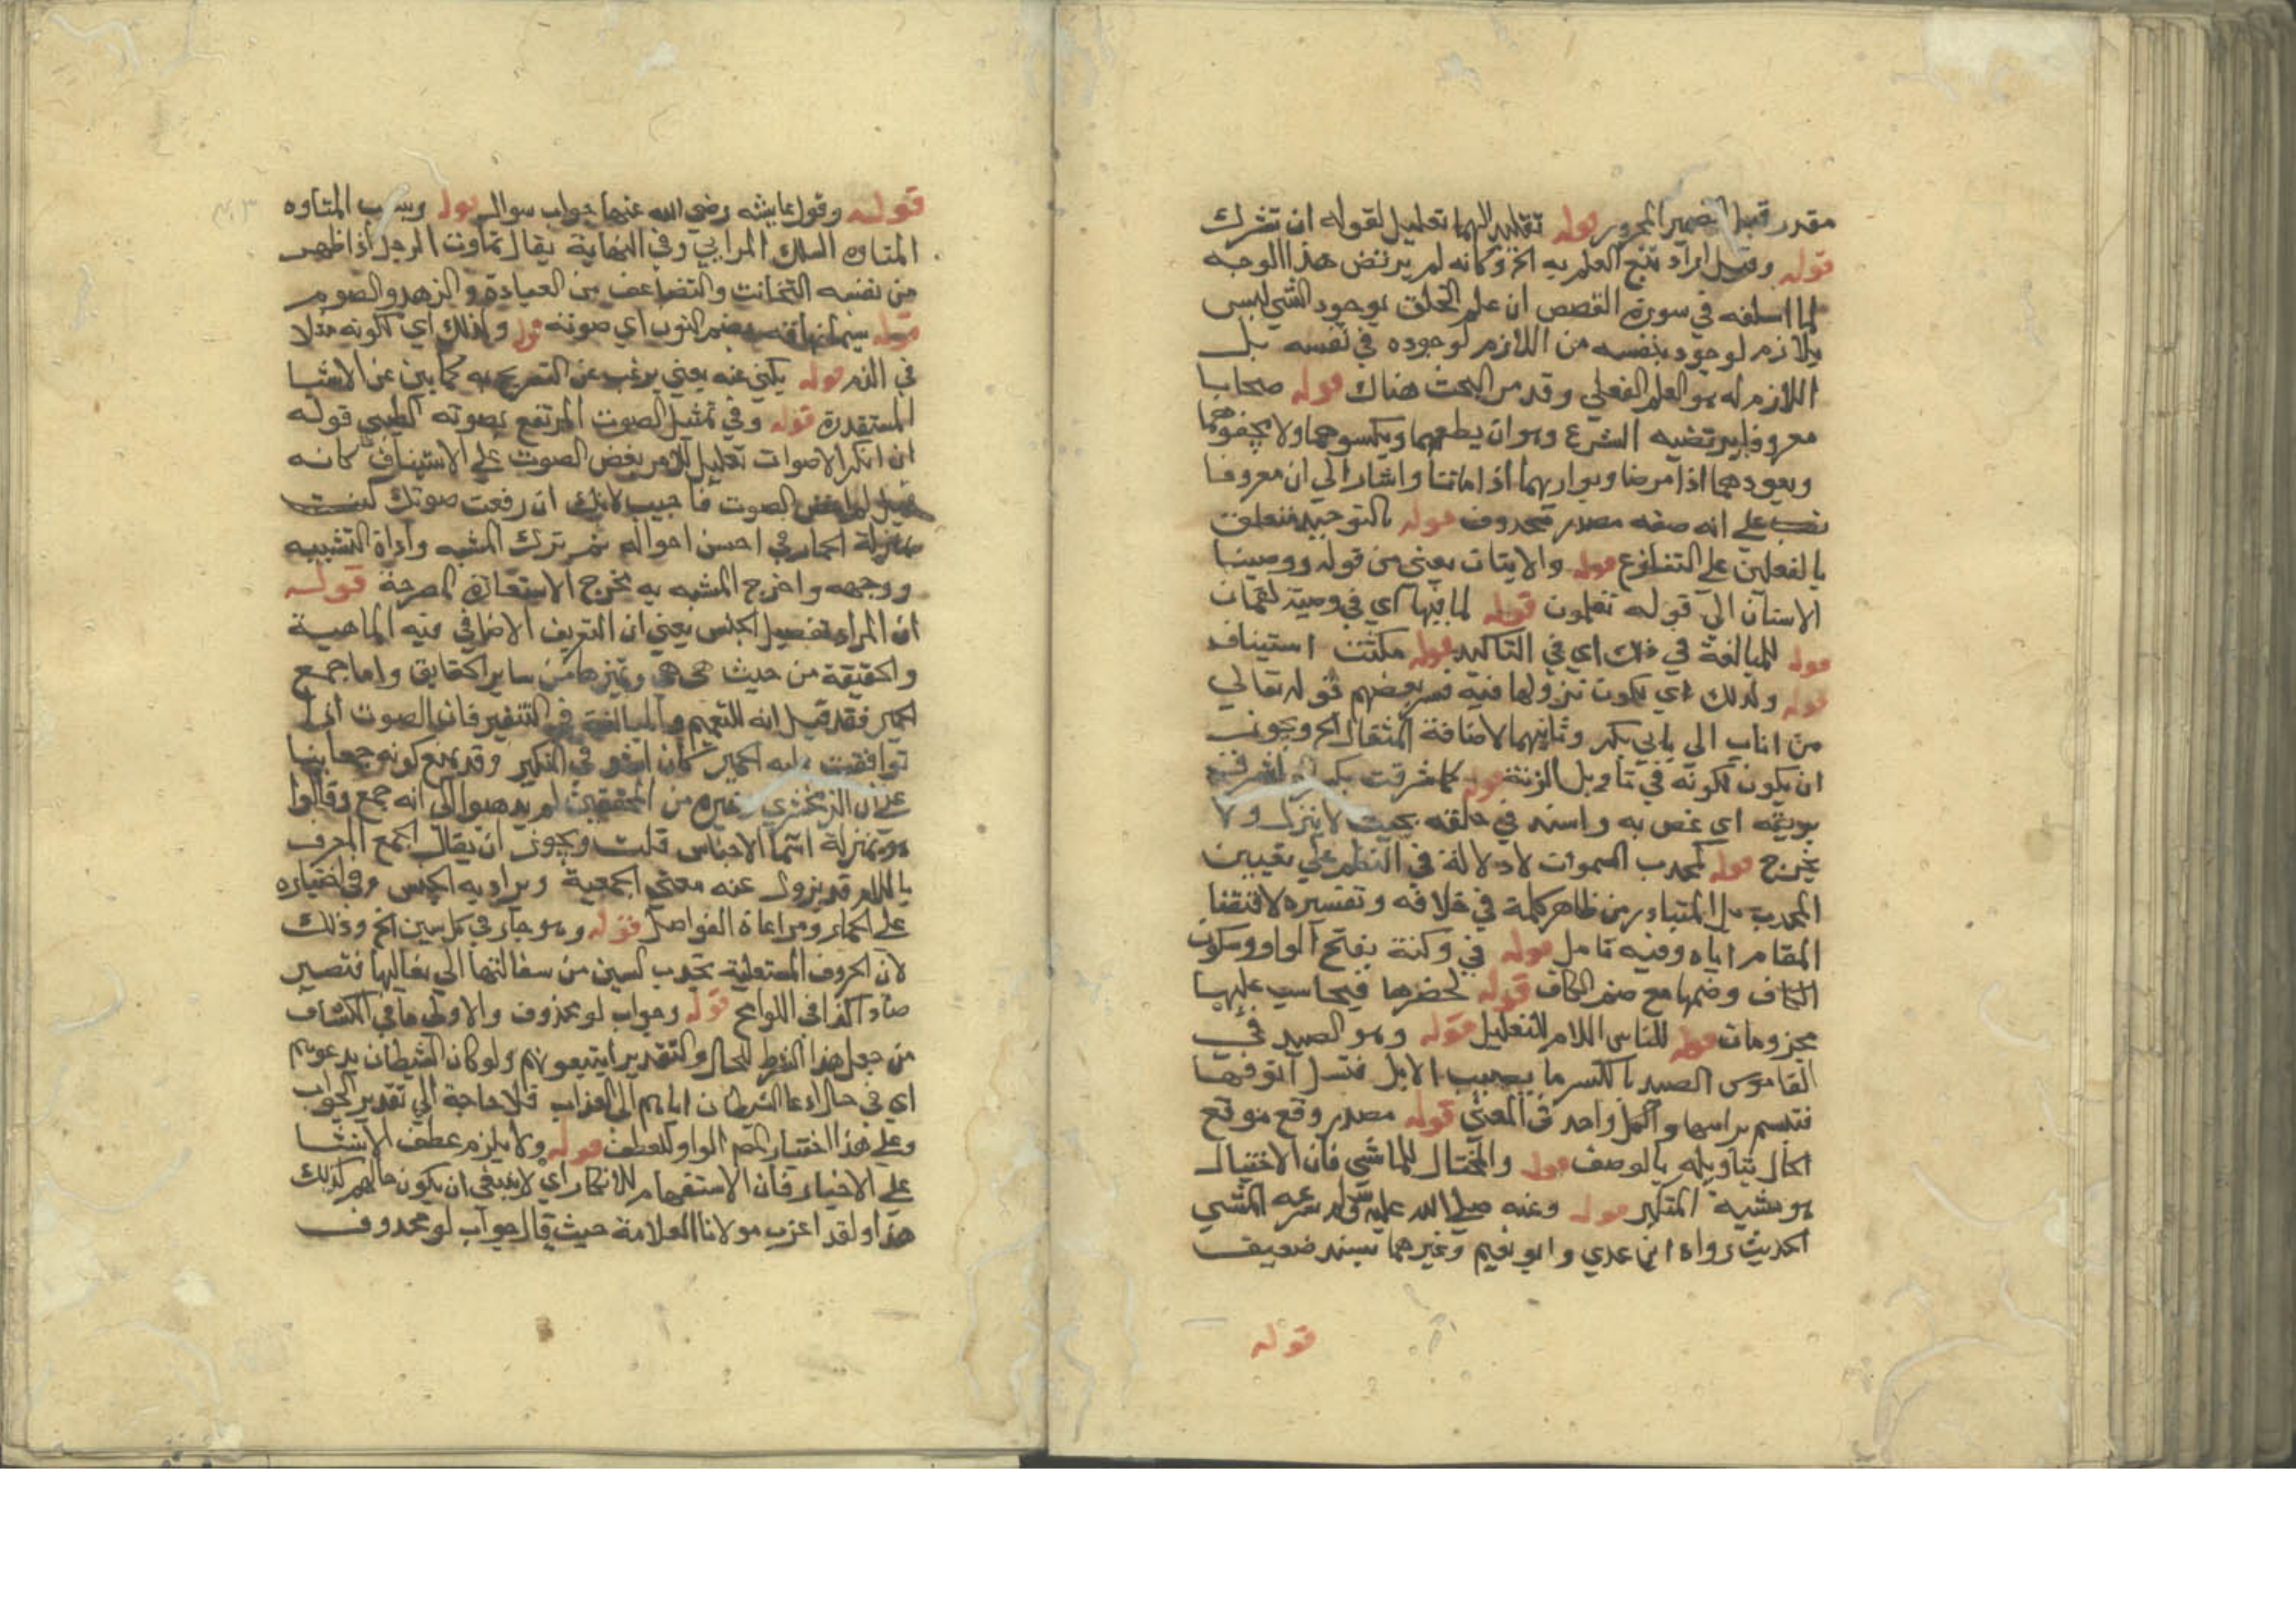 مقدر قبل الضمير المجرور قوله تقليد الهما تعليل لقوله ان تشرك
قوله وقيل اراد بنفي العلم به الخ وكانه لم يرتض هذا الوجه
لما اسلفه في سورة القصص ان علم الخلق بوجود الشي ليس
بلازم لوجود بنفسه من اللازم لوجوده في نفسه بل
اللازم له هو العلم الفعلي وقد مر البحث هناك قوله صحابا
معروفا يرتضيه الشرع وهو ان يطعمهما ويكسوهما ولا يجفوهما
ويعودهما اذا مرضا ويواريهما اذا ماتتا واشار الي ان معروفا
نصب علي انه صفه مصدر محذوف قوله بالتوحيد متعلق
بالفعلين علي التنازع قوله والايتان يعني من قوله ووصينا
الانسان الي قوله تعلمون قوله لما فيها اي في وصية لقمان
قوله للمبالغة في ذلك اي في التاكيد قوله مكثت استيناف
قوله ولذلك اي لكون نزولها فيه فسر بعضهم قوله تعالي
من اناب الي بابي بكر وتانيهما لاضافة المثقال الخ ويجوز
ان يكون لكونه في تاويل الزنة قوله كما شرقت بكسر الراء شرق
بريقه اي غص به واسند في حلقه بحيث لا ينزل ولا
يخرج قوله كمحدب السموات لا دلالة في النظم علي تعيين
المحدب بل المتبادر من ظاهر كلمة في خلافه وتفسيره لاقتضا
المقام اياه وفيه تامل قوله في وكنة بفتح الواو وسكون
الكاف وضمها مع ضم الكاف قوله يحضرها فيحاسب عليها
مجزومات قوله للناس اللام للتعليل قوله وهو الصيد في
القاموس الصيد بالكسر ما يصيب الابل فتسيل انوفها
فتسم براسها والكل واحد في المعني قوله مصدر وقع موقع
الحال بتاويله بالوصف قوله والمختال للماشي فان الاختيال
هو مشية المتكبر قوله وعنه صلي الله عليه وسلم سرعه المشي
الحديث رواه ابن عدي وابو نعيم وغيرهما بسند ضعيف
قوله
قوله وقول عايشه رضي الله عنها جواب سوال قوله وبسبب المتاوه
المتاوه السلك المرابي وفي النهاية يقال تماوت الرجل اذا ظهر
من نفسه التخافت والتضاعف من العبادة والزهد والصوم
قوله سيما نهاقه بضم النون اي صوته قوله ولذلك اي لكونه مثلا
في الذم قوله يكني عنه يعني يرغب عن التصريح به كما يكني عن الاشيا
المستقذرة قوله وفي تمثيل الصوت المرتفع بصوته الطيبي قوله
ان انكر الاصوات تعليل للامر بغض الصوت علي الاستيناف كانه
قيل لم اغض الصوت فاجيب لانك ان رفعت صوتك كنت
بمنزلة الحمار في احسن احواله ثم ترك المشبه واداة التشبيه
ووجهه واخرج المشبه به مخرج الاستعارة المصرحة قوله
ان المراد تفصيل الجنس يعني ان التعريف الاضافي فيه الماهية
والحقيقة من حيث هي هي وتميزها من ساير الحقايق واما جمع
الحمير فقد قيل انه للتعميم والمبالغة في التنفير فان الصوت اذا
توافقت عليه الحمير كان انكر في النكير وقد يمنع كونه جمعا بنا
علي ان الزمخشري وغيره من المحققين لم يذهبوا الي انه جمع وقالوا
هو بمنزلة اسما الاجناس قلت ويجوز ان يقال الجمع المعرف
باللام قد يزول عنه معني الجمعية ويراد به الجنس وفي اختياره
علي الحمار ومراعاة الفواصل قوله وهو جار في كل سين الخ وذلك
لان الحروف المستعلية تجذب السين من سفالتها الي تعاليها فتصير
صادا كذا في اللوامح قوله وجواب لو محذوف والاولي ما في الكشاف
من جعل هذا الشرط للحال والتقدير ايتبعونهم ولو كان الشيطان يدعوهم
اي في حال دعا الشيطان اياهم الي العذاب فلا حاجة الي تقدير الجواب
وعلي هذا اختيار كون الواو للعطف قوله ولا يلزم عطف الانشا
علي الاخبار فان الاستفهام للانكار اي لا ينبغي ان يكون حالهم كذلك
هذا ولقد اغرب مولانا العلامة حيث قال جواب لو محذوف